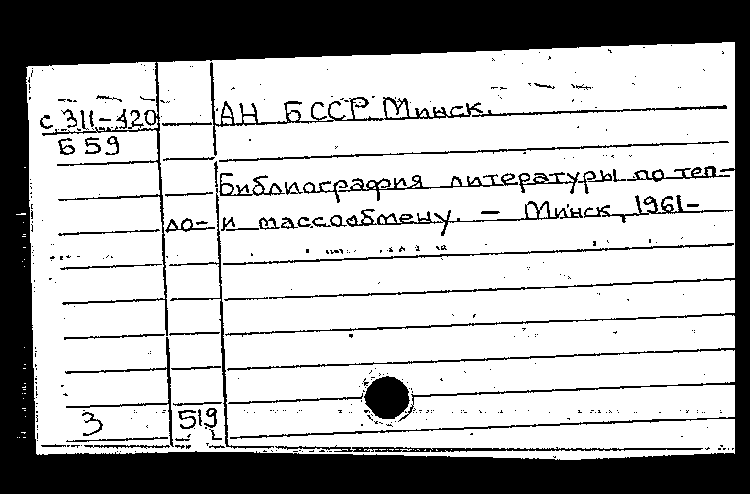 с 311-420 АН БССР. Минск.
Б 59
Библиография литературы по теп-
ло- и массообмену. — Минск, 1961-
3 519